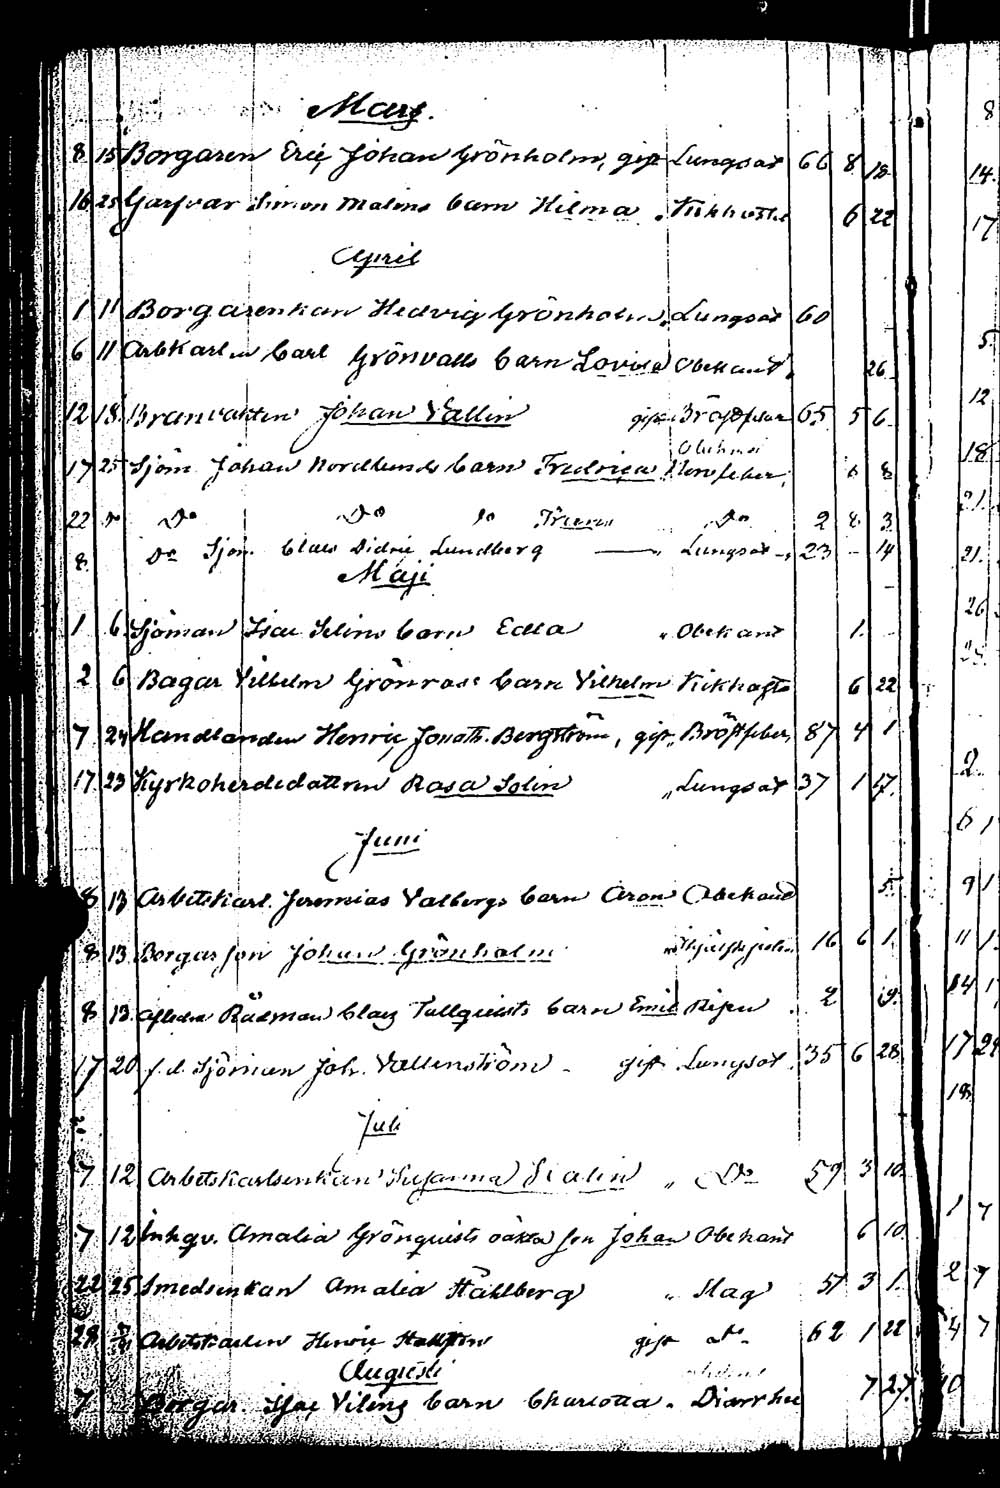 Mars.
8 15 Borgaren Eric Johan Grönholm, gift Lungsot 66 8 18
16 25 Garfvar Simon Malins barn Hilma " Kikhosta 6 22
April
1 11 Borgarenkan Hedvig Grönholm, Lungsot 60
6 11 Arbkarlen Carl Grönvalls barn Lovisa Obekant. 26
12 18 Branvakten Johan Vallin gift Bröstfeber 65 5 6
17 25 Sjöm Johan Nordlunds barn Fredrica 8
22 Do Do Do Do 2 8 3
8 Do Sjöm. Claes Didric Lundberg — " Lungsot 23 - 14
Maji
1 6 Sjöman Isac Selins barn Edla " Obekant 1.
2 6 Bagar Vilhelm Grönroos barn Vilhelm Kikhosta 6 22
7 24 Handlanden Henric Jonath. Bergström, gift " Bröstfeber, 87 4 1
17 23 Kyrkoherdedottren Rosa Solin " Lungsot 37 1 17.
Juni
8 13 Arbetskarl. Jeremias Valbergs barn Aron Obekand 5
8 13 Borgar son Johan Grönholm 16 6 1
8 13 Rådman Claes Tallquists barn Emil 2 19.
17 20 f.d. Sjöman Joh. Vallenström - gift Lungsot. 35 6 28
Juli
7 12 Arbetskarlsenkan Susanna Malin " Do 59 3 10
7 12 Inhqv. Amalia Grönquists oäkta son Johan Obekant 6 10
22 25 Smedsenkan Amalia Ståhlberg " Slag 51 3 1.
28 Arbetskarlen Henric gift do 62 1 22
Augusti
7 Borgar. Isac Viléns barn Charlotta. Diarrhee 7 27.
8
14
17
5
12
18
21
21
26
25
2
6 1
9 1
11 1
14 1
17 29
18
1 7
2 7
4 7
10